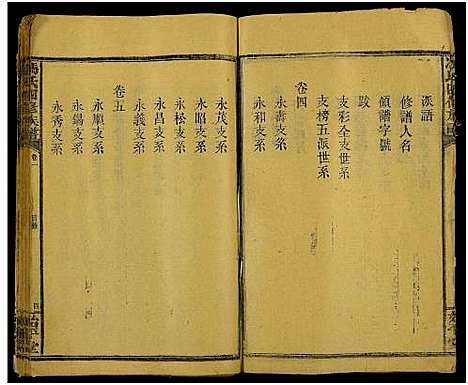 派語
修譜人名
領譜字號
跋
支彩全支世系
支榜五派世系
卷四
永壽支系
永和支系
永茂支系
永昭支系
永松支系
永昌支系
永義支系
卷五
永順支系
永錫支系
永秀支系
馮氏四修族譜
卷一
目錄